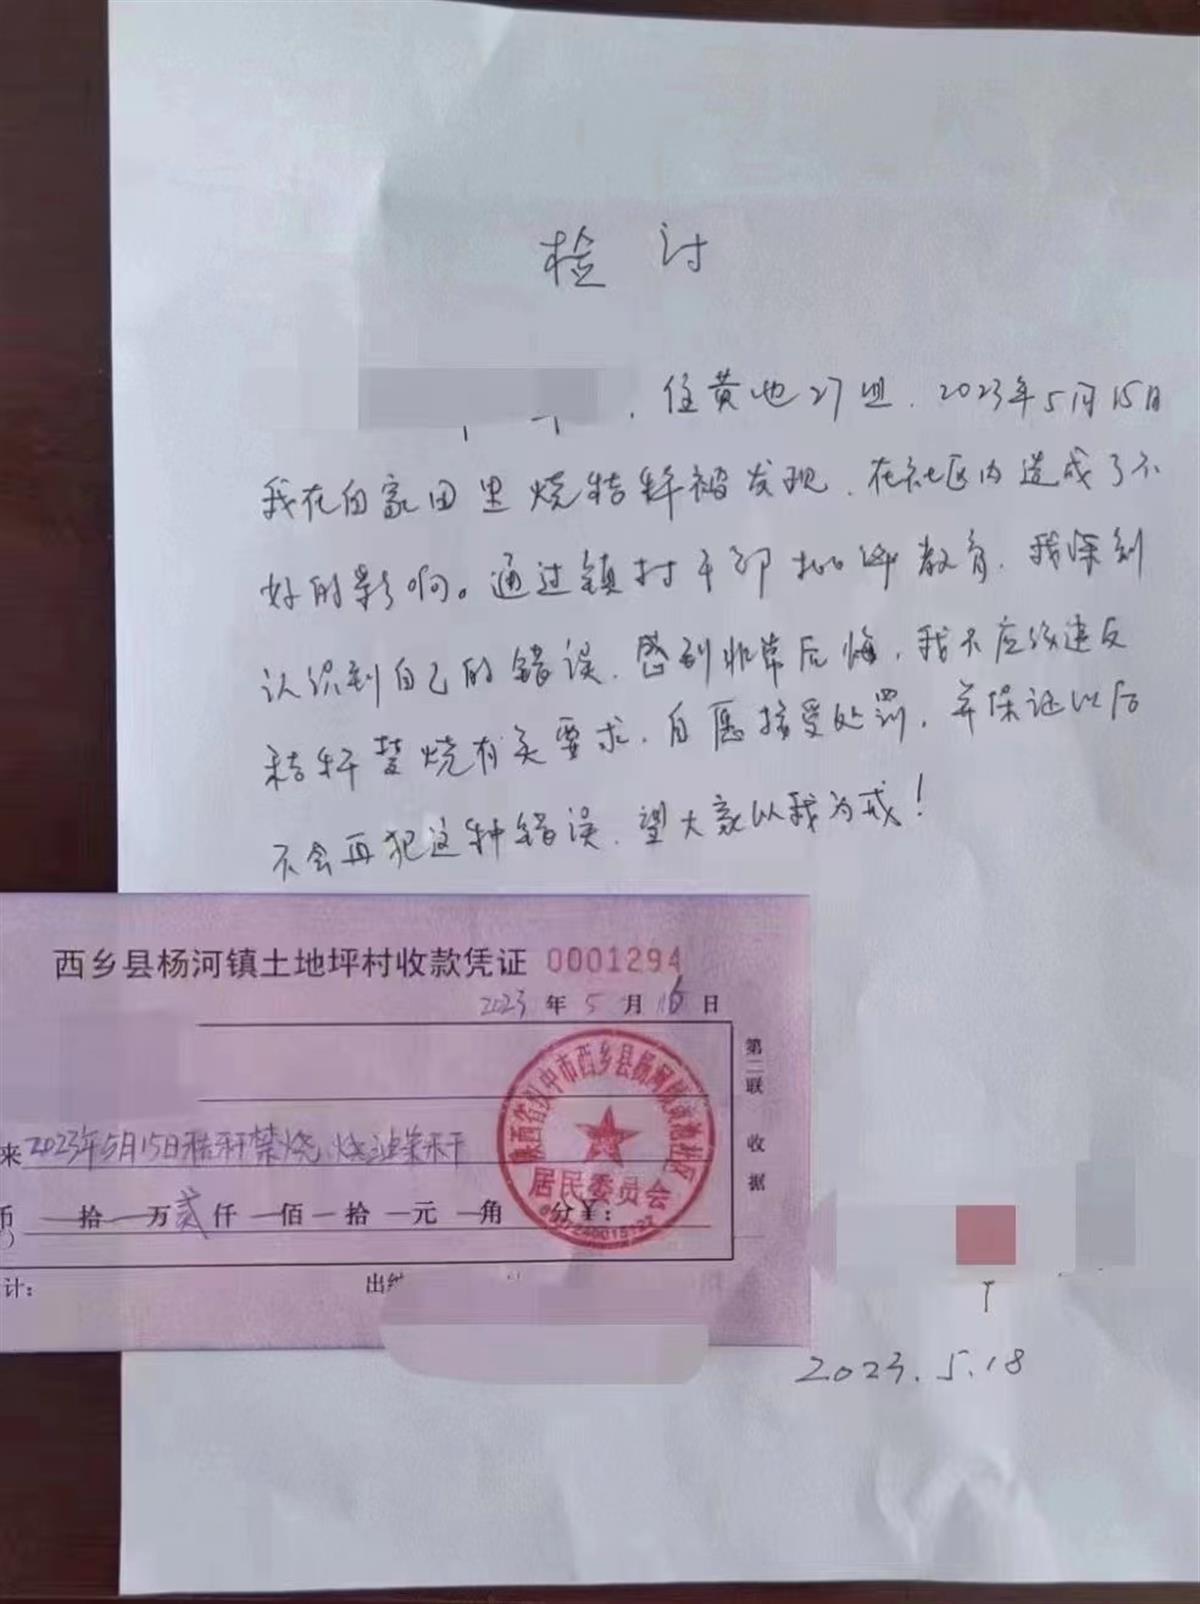 检讨
，住黄池27组，2023年5月15日
我在自家田里烧秸秆被发现，在社区内造成了不
好的影响。通过镇村干部批评教育，我深刻
认识到自己的错误，感到非常后悔，我不应该违反
秸秆禁烧有关要求，自愿接受处罚，并保证以后
不会再犯这种错误，望大家以我为戒！
西乡县杨河镇土地坪村收款凭证 0001294
2023 年 5 月 16 日
来 2023年5月15日秸秆禁烧，烧油菜禾干
币 拾 万 贰 仟 佰 拾 元 角 分 ¥：
计： 出纳
第二联 收据
陕西省汉中市西乡县杨河镇黄池社区
居民委员会
2023.5.18